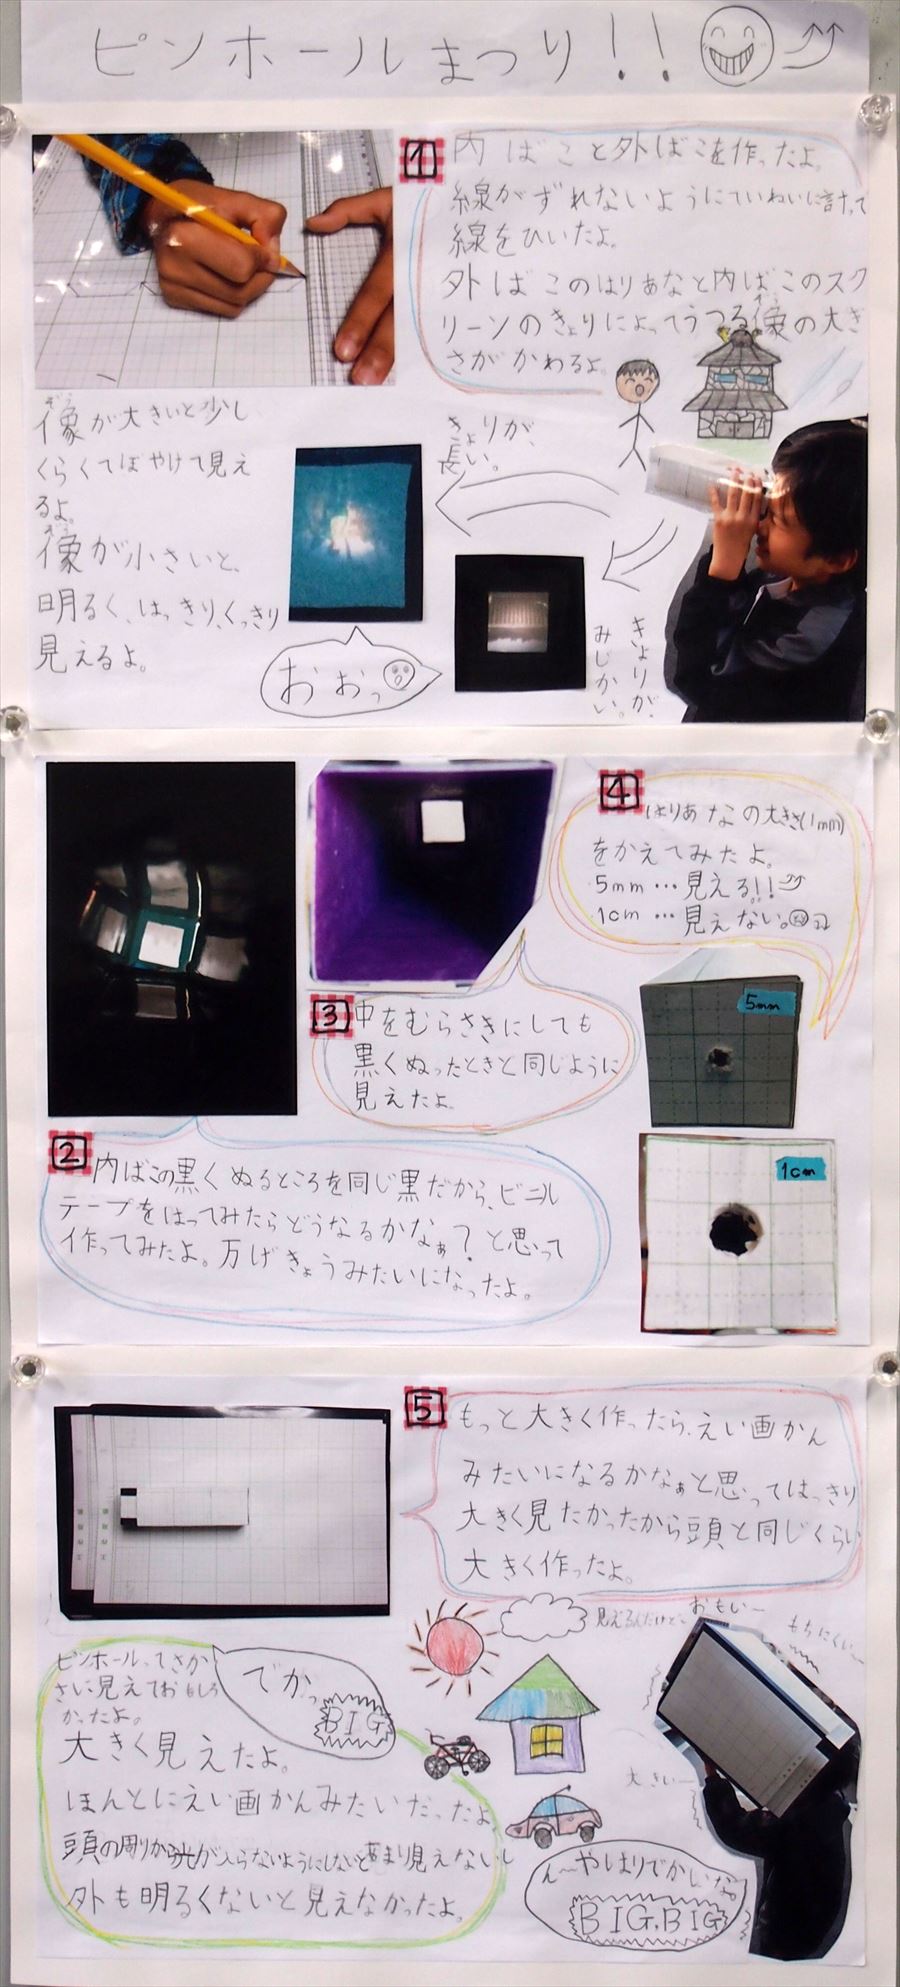 ピンホールまつり!!
1
内ばこと外ばこを作ったよ。
線がずれないようにていねいに計って
線をひいたよ。
外ばこのはりあなと内ばこのスク
リーンのきょりによってうつる像の大き
さがかわるよ。
ぞう
ぞう
像が大きいと少し
くらくてぼやけて見え
るよ。
ぞう
像が小さいと、
明るく、はっきり、くっきり
見えるよ。
きょりが、
長い。
きょりが、
みじかい。
おおっ
4
はりあなの大きさ(1mm)
をかえてみたよ。
5mm…見える!!
1cm…見えない。
5mm
1cm
3
中をむらさきにしても
黒くぬったときと同じように
見えたよ。
2
内ばこの黒くぬるところを同じ黒だから、ビニル
テープをはってみたらどうなるかなぁ?と思って
作ってみたよ。万げきょうみたいになったよ。
5
もっと大きく作ったら、えい画かん
みたいになるかなぁと思ってはっきり
大きく見たかったから頭と同じくらい
大きく作ったよ。
見えるんだけど〜
おもい〜
もちにくい〜
大きい〜
でかっ
BIG
ピンホールってさか
さに見えておもしろ
かったよ。
大きく見えたよ。
ほんとにえい画かんみたいだったよ。
頭の周りから光が入らないようにしないとあまり見えないし
外も明るくないと見えなかったよ。
ん〜やはりでかいな。
BIG,BIG